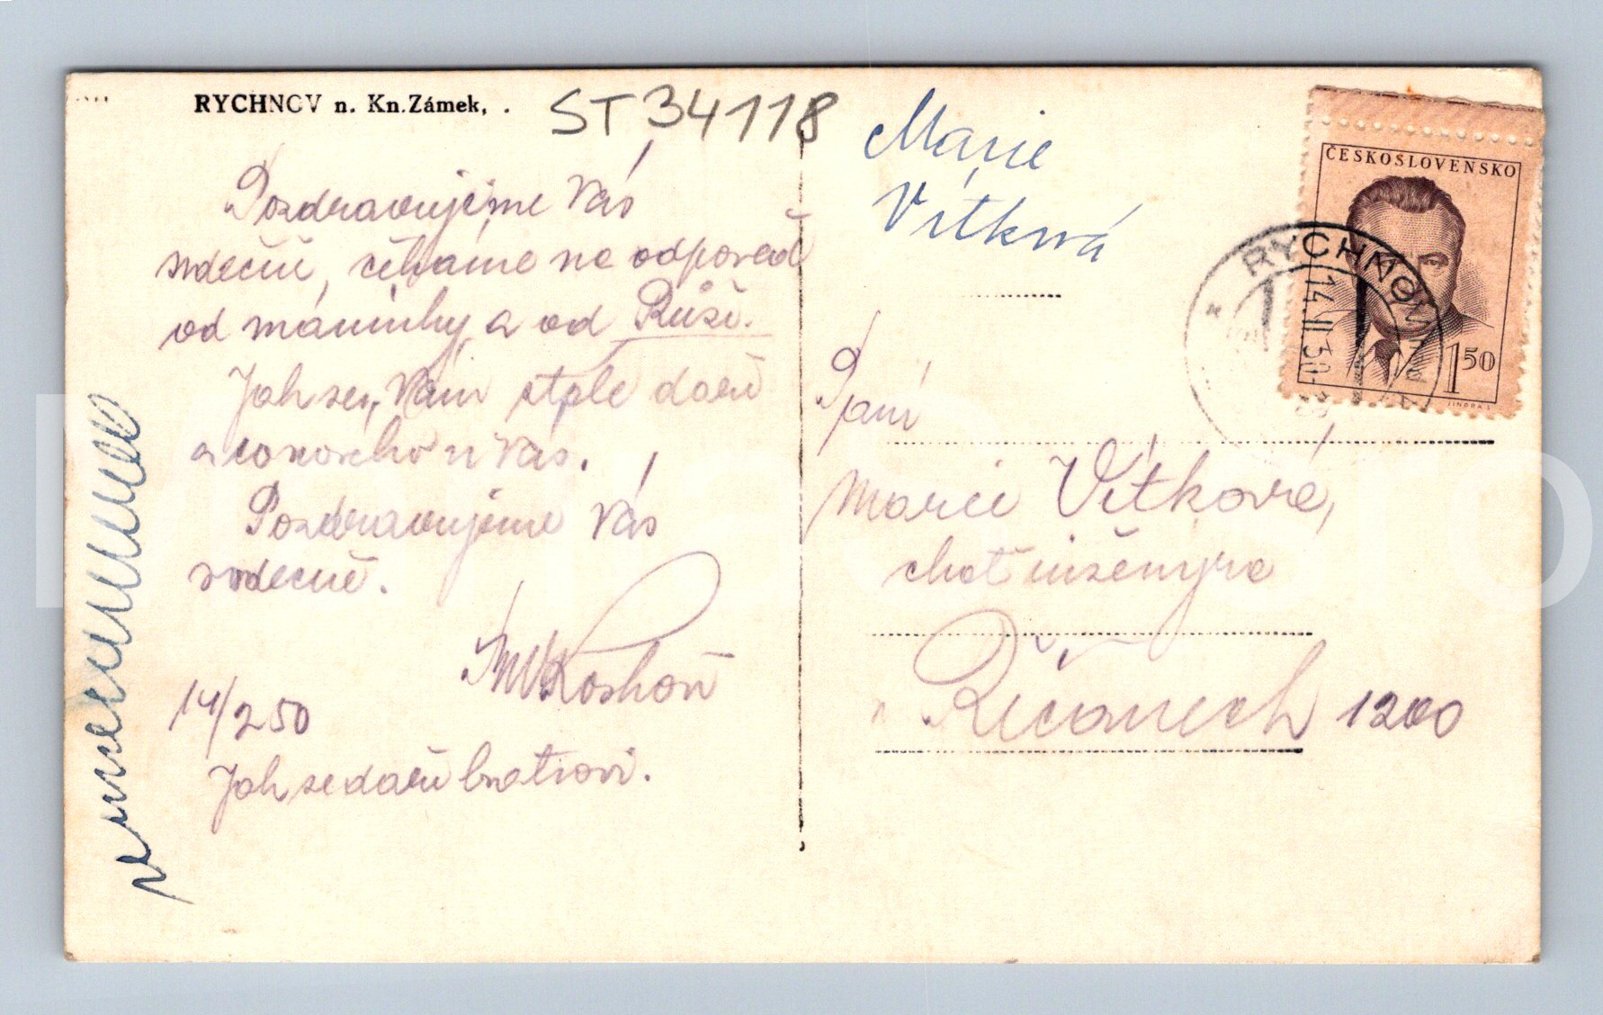 RYCHNOV n. Kn. Zámek, .
ST 34118
Pozdravujeme Vás
srdečně, čekáme na odpověď
od máminky a od Růži.
Jak se, Vám stále daří
a co nového u Vás.
Pozdravujeme Vás
srdecně.
14/2 50
Jak se daří bratrovi.
Marie
Vítková
ČESKOSLOVENSKO
1 50
RYCHNOV
14.II.50
Paní
Marie Vítková,
choť inženýra
v Říčanech 1200